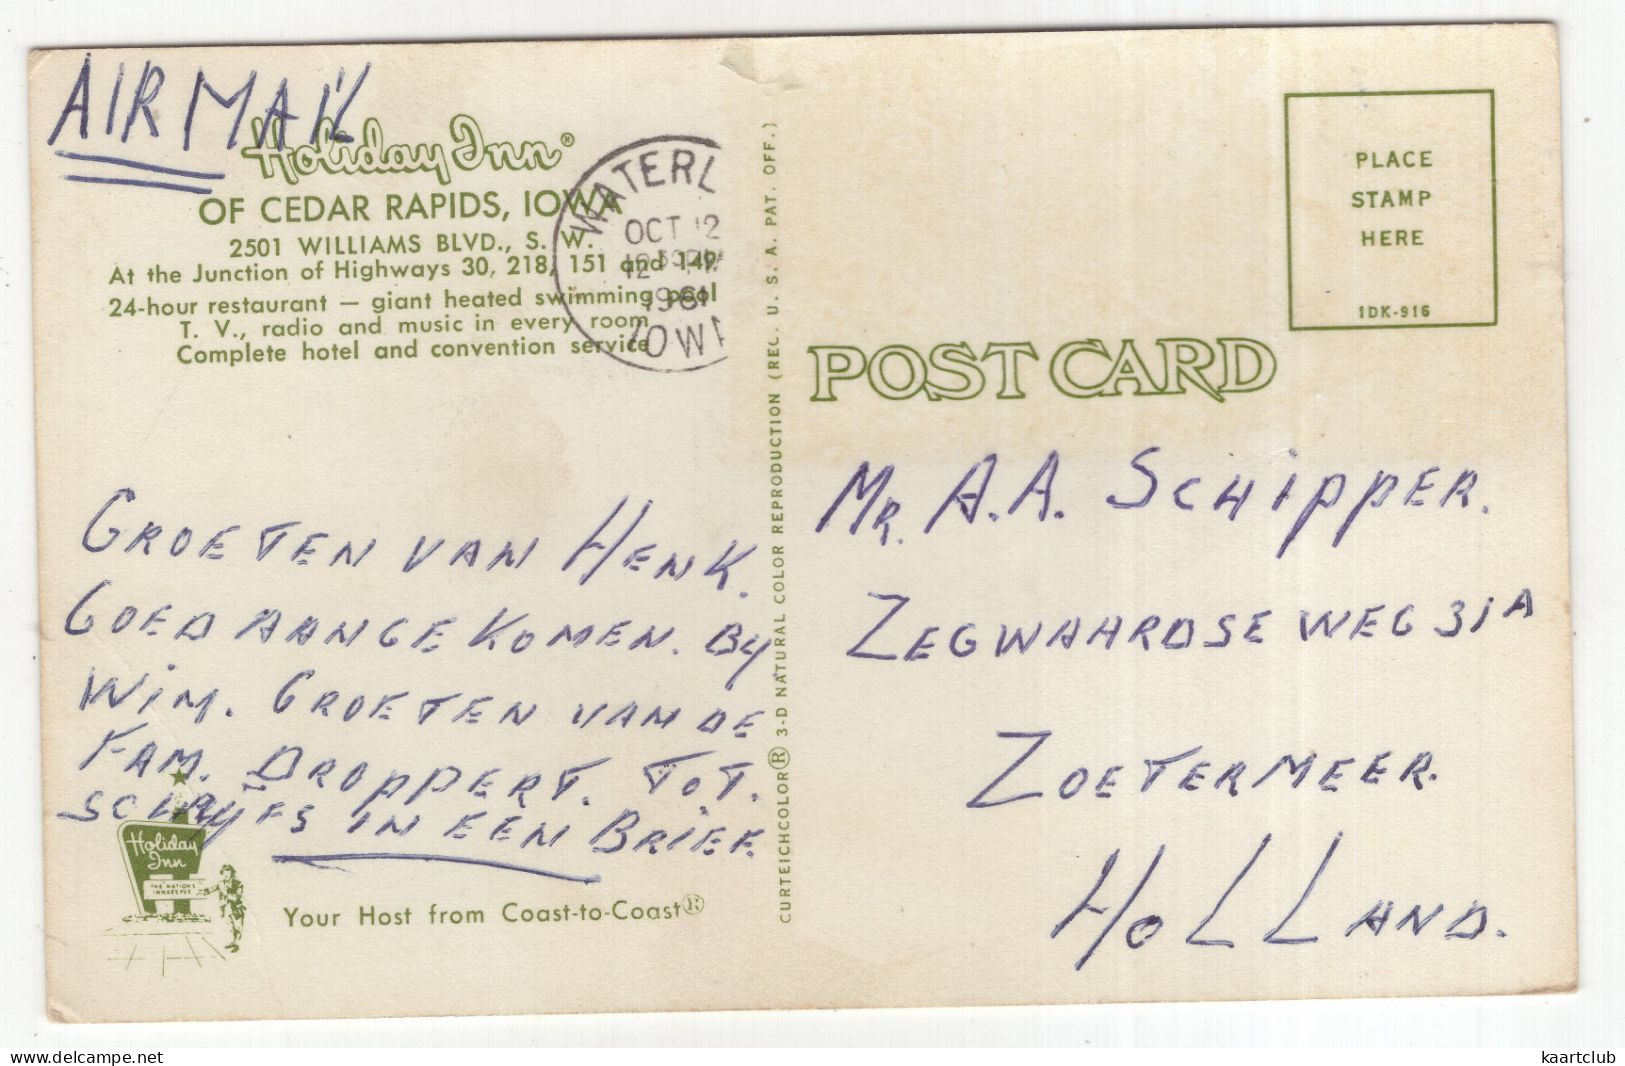 AIR MAIL
Holiday Inn®
OF CEDAR RAPIDS, IOWA
2501 WILLIAMS BLVD., S. W.
At the Junction of Highways 30, 218, 151 and 149
24-hour restaurant — giant heated swimming pool
T. V., radio and music in every room
Complete hotel and convention service
WATERL
OCT 12
1961
IOWA
GROETEN VAN HENK.
GOED AANGEKOMEN. BY
WIM. GROETEN VAN DE
FAM. DROPPERT. TOT.
IN EEN BRIEF.
Holiday
Inn
THE NATION'S
INNKEEPER
Your Host from Coast-to-Coast®
CURTEICHCOLOR® 3-D NATURAL COLOR REPRODUCTION (REG. U. S. A. PAT. OFF.)
PLACE
STAMP
HERE
1DK-916
POST CARD
MR. A.A. SCHIPPER.
ZEGWAARDSE WEG 31A
ZOETERMEER.
HOLLAND.
kaartclub
delcampe.net